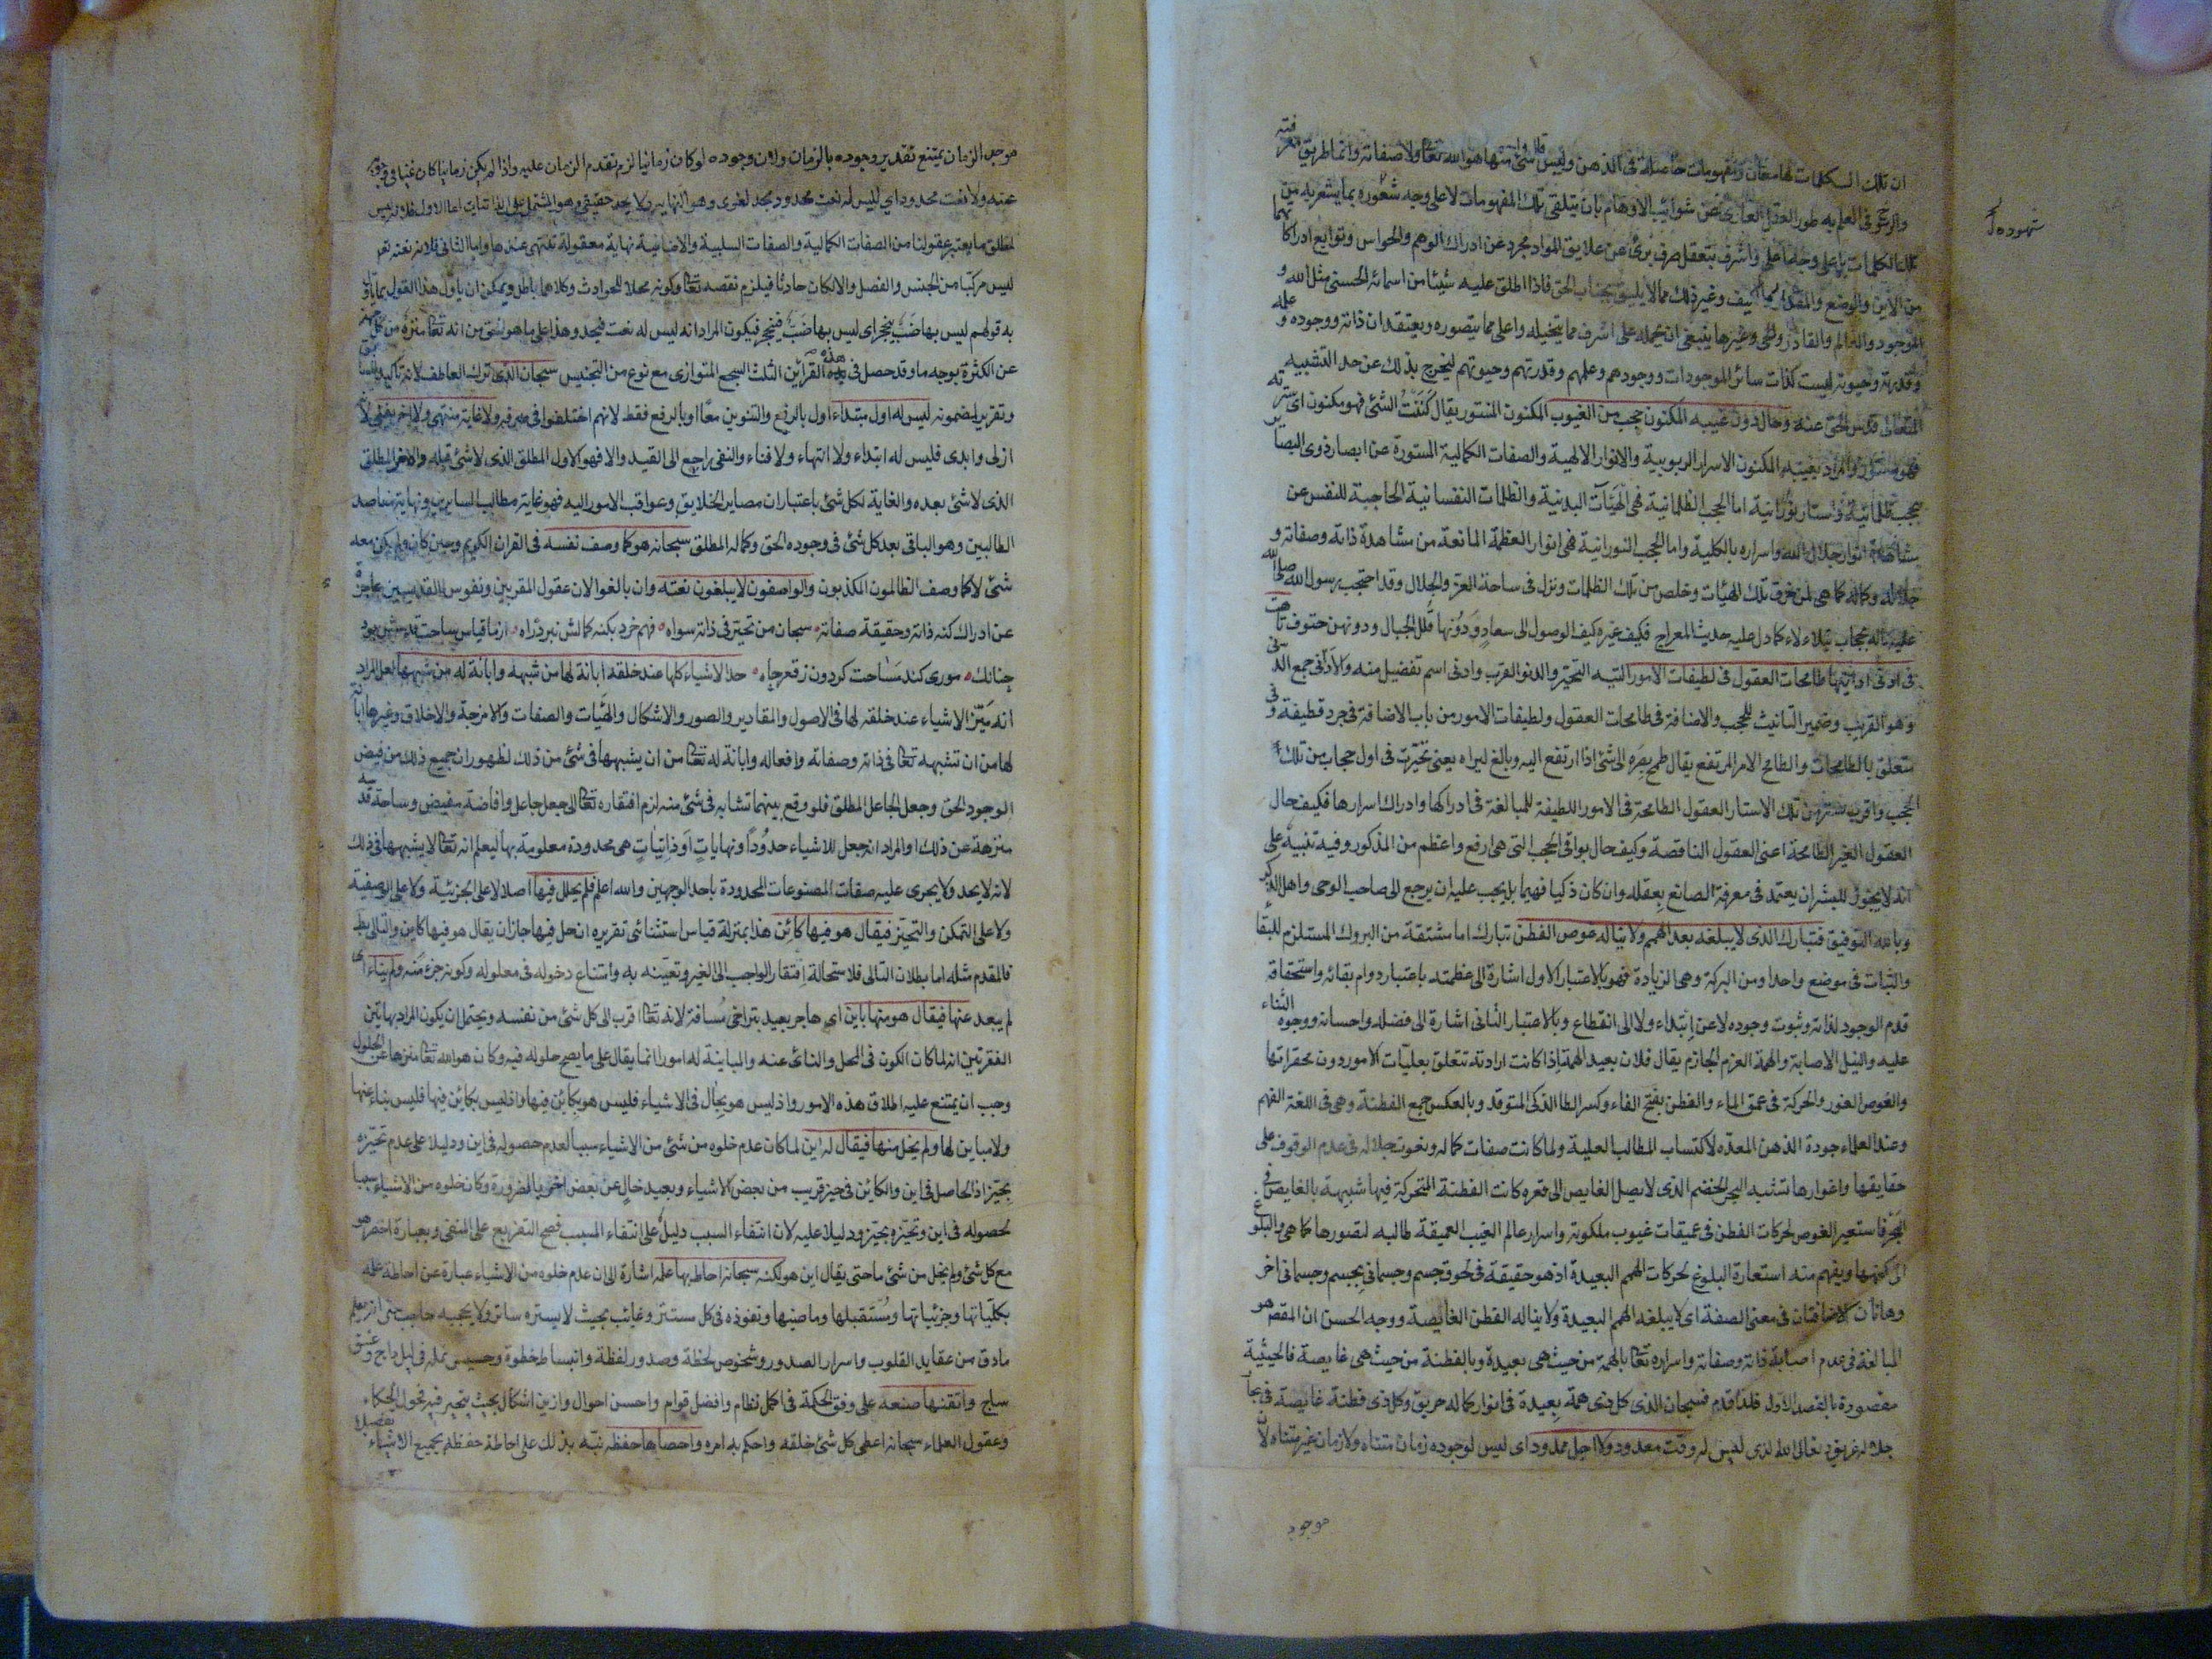 ان تلك الكلمات لها معان ومفهومات حاصلة في الذهن وليس شئ منها هو الله تعا ولا صفاته وانما طريق معرفته
والرجوع في العلم به طور العقل العارى عن شوائب الاوهام بان يتلقى تلك المفهومات لا على وجه شعوره بما يشعر به من
تلك الكلمات بل على وجه اعلى واشرف بتعقل صرف برئ عن علايق المواد مجرد عن ادراك الوهم والحواس وتوابع ادراكاتهما
من الأين والوضع والمقدار والكيف وغير ذلك مما لا يليق بجناب الحق فاذا اطلق عليه شيئا من اسمائه الحسنى مثل الله و
الموجود والعالم والقادر والحى وغيرها ينبغى ان يحمله على اشرف مما يتخيله واعلى مما يتصوره ويعتقد ان ذاته ووجوده وعلمه
وقدرته وحيوته ليست كذات سائر الموجودات ووجودهم وعلمهم وقدرتهم وحيوتهم ليخرج بذلك عن حد التشبيه
المتعالى قدس الحق عنه وحال دون غيبه المكنون حجب من الغيوب المكنون المستور يقال كننت الشئ فهو مكنون اى سترته
فهو مستور والمراد بغيبه المكنون الاسرار الربوبية والانوار الالهية والصفات الكمالية المستورة عن ابصار ذوى البصاير
بحجب ظلمانية واستار نورانية اما الحجب الظلمانية فهى الهيآت البدنية والظلمات النفسانية الحاجبة للنفس عن
مشاهدة انوار جلال الله واسراره بالكلية واما الحجب النورانية فهى انوار العظمة المانعة من مشاهدة ذاته وصفاته و
جلاله وكماله كما هى لمن خرق تلك الهيئات وخلص من تلك الظلمات ونزل فى ساحة العزة والجلال وقد احتجب رسول الله صلى الله
عليه وآله بحجاب يتلاءلاء كما دل عليه حديث المعراج فكيف غيره كيف الوصول الى سعاد ودونها قلل الجبال ودونهن حتوف تاهت
فى ادنى ادانيها طامحات العقول فى لطيفات الامور التيه التحير والدنو القرب وادنى اسم تفضيل منه والادانى جمع الدنى
وهو القريب وضمير التانيث للحجب والاضافة فى طامحات العقول ولطيفات الامور من باب الاضافة فى جرد قطيفة وفى
متعلق بالطامحات والطامح الامر المرتفع يقال طمح بصره الى الشئ اذا ارتفع اليه وبالغ ليراه يعنى تحيرت فى اول حجاب من تلك
الحجب واقرب ستر من تلك الاستار العقول الطامحة فى الامور اللطيفة للمبالغة فى ادراكها وادراك اسرارها فكيف حال
العقول الغير الطامحة اعنى العقول الناقصة وكيف حال بواقى الحجب التى هى ارفع واعظم من المذكور وفيه تنبيه على
انه لا يجوز للبشر ان يعتمد فى معرفة الصانع بعقله وان كان ذكيا فهيما بل يجب عليه ان يرجع الى صاحب الوحى واهل الذكر
وبالله التوفيق فتبارك الذى لا يبلغه بعد الهمم ولا يناله غوص الفطن تبارك اما مشتقة من البروك المستلزم للبقاء
والثبات فى موضع واحد او من البركة وهى الزيادة فهو بالاعتبار الاول اشارة الى عظمته باعتبار دوام بقائه واستحقاقه
قدم الوجود لذاته وثبوت وجوده لا عن ابتداء ولا الى انقطاع وبالاعتبار الثانى اشارة الى فضله واحسانه ووجوه الثناء
عليه والنيل الاصابة والهمة العزم الجازم يقال فلان بعيد الهمة اذا كانت ارادته تتعلق بعليات الامور دون محقراتها
والغوص الغور والحركة فى عمق الماء والفطن بفتح الفاء وكسر الطا الذكى المتوقد وبالعكس جمع الفطنة وهى فى اللغة الفهم
وعند العلماء جودة الذهن المعدة لاكتساب المطالب العلية ولما كانت صفات كماله ونعوت جلاله فى عدم الوقوف على
حقايقها واغوارها تشبه البحر الخضم الذى لا يصل الغايص الى قعره كانت الفطنة المتحركة فيها شبيهة بالغايص فى
البحر فاستعير الغوص لحركات الفطن فى عميقات غيوب ملكوته واسرار عالم الغيب العميقة طالبه لتصورها كما هى والبلوغ
الى كنهها ويفهم منه استعارة البلوغ لحركات الهمم البعيدة اذ هو حقيقة فى لحوق جسم وجسمانى بجسم وجسمانى اخر
وهاتان الاضافتان فى معنى الصفة اى لا يبلغه الهمم البعيدة ولا يناله الفطن الغايصة ووجه الحسن ان المقصود هو
المبالغة فى عدم اصابة ذاته وصفاته واسراره تعا بالهمة من حيث هى بعيدة وبالفطنة من حيث هى غايصة فالحيثية
مقصودة بالقصد الاول فلذا قدم فسبحان الذى كل ذى همة بعيدة فى انوار كماله حريق وكل ذى فطنة غايصة فى بحار
جلاله غريق وتعالى الله الذى ليس له وقت معدود ولا اجل ممدود اى ليس لوجوده زمان متناه ولا زمان غير متناه لان
موجود
شهوده
موجد الزمان يمتنع تقدير وجوده بالزمان ولان وجوده لو كان زمانيا لزم تقدم الزمان عليه واذا لم يكن زمانيا كان غنيا فى وجوده
عنه ولا نعت محدود اي ليس له نعت محدود بحد لغوى وهو النهاية ولا بحد حقيقى وهو المشتمل على الذاتيات اما الاول فلانه ليس
لمطلق ما يعتبره عقولنا من الصفات الكمالية والصفات السلبية والاضافية نهاية معقولة تنتهى عندها واما الثانى فلان نعته تعا
ليس مركبا من الجنس والفصل والا لكان حادثا فيلزم نقصه تعا وكونه محلا للحوادث وكلاهما باطل ويمكن ان ياول هذا القول بما ياول
به قولهم ليس بها ضب ينجحر اى ليس بها ضب فينجحر فيكون المراد انه ليس له نعت فيحد وهذا على ما هو الحق من انه تعا منزه من كل جهة
عن الكثرة بوجه ما وقد حصل فى هذه القرائن الثلث السجع المتوازى مع نوع من التجنيس سبحان الذى ترك العاطف لانه تاكيد
وتقرير لمضمونه ليس له اول مبتداء اول بالرفع والتنوين معا او بالرفع فقط لانهم اختلفوا فى صرفه ولا غاية منتهى ولا اخر يفنى لانه
ازلى وابدى فليس له ابتداء ولا انتهاء ولا فناء والنفى راجع الى القيد والا فهو الاول المطلق الذى لا شئ قبله والاخر المطلق
الذى لا شئ بعده والغاية لكل شئ باعتبار ان مصاير الخلايق وعواقب الامور اليه فهو غاية مطالب السايرين ونهاية مقاصد
الطالبين وهو الباقى بعد كل شئ فى وجوده الحق وكماله المطلق سبحانه هو كما وصف نفسه فى القران الكريم وحين كان ولم يكن معه
شئ لا كما وصف الظالمون المكذبون والواصفون لا يبلغون نعته وان بالغوا لان عقول المقربين ونفوس القديسين عاجزة
عن ادراك كنه ذاته وحقيقة صفاته سبحان من تحير فى ذاته سواه فهم خرد بكنه كمالش نبرد راه از ما قياس ساحت قدسش بود
چنانك مورى كند مساحت كردون ز قعر چاه حد الاشياء كلها عند خلقه ابانة لها من شبهه وابانة له من شبهها لعل المراد
انه ميز الاشياء عند خلقه لها فى الاصول والمقادير والصور والاشكال والهيآت والصفات والامزجة والاخلاق وغيرها ابانة
لها من ان تشبهه تعا فى ذاته وصفاته وافعاله وابانة له تعا من ان يشبهها فى شئ من ذلك لظهور ان جميع ذلك من فيض
الوجود الحق وجعل الجاعل المطلق فلو وقع بينهما تشابه فى شئ منه لزم افتقاره تعا الى جعل جاعل وافاضة مفيض وساحة قدسه
منزهة عن ذلك او المراد انه جعل للاشياء حدودا ونهايات او ذاتيات هى محدودة معلومة بها ليعلم انه تعا لا يشبهها فى ذلك
لانه لا يحد ولا يجرى عليه صفات المصنوعات المحدودة باحد الوجهين والله اعلم فلم يحلل فيها اصلا لا على الجزئية ولا على الوصفية
ولا على التمكن والتحيز فيقال هو فيها كائن هذا بمنزلة قياس استثنائى تقريره ان حل فيها جاز ان يقال هو فيها كاين والتالى بط
فالمقدم مثله اما بطلان التالى فلاستحالة افتقار الواجب الى الغير وتعينه به وامتناع دخوله فى معلوله وكونه جزء منه ولم يناء اى
لم يبعد عنها فيقال هو منها باين اى هاجر بعيد بتراخى مسافة لانه تعا اقرب الى كل شئ من نفسه ويحتمل ان يكون المراد بهاتين
الفقرتين انه لما كان الكون فى المحل والنائى عنه والمباينة له امورا انما يقال على ما يصح حلوله فيه وكان هو الله تعا منزها عن الحلول
وجب ان يمتنع عليه اطلاق هذه الامور واذ ليس هو بحال فى الاشياء فليس هو بكائن فيها واذ ليس بكائن فيها فليس بناء عنها
ولا مباين لها ولم يخل منها فيقال له اين لما كان عدم خلوه من شئ من الاشياء سببا لعدم حصوله فى اين ودليلا على عدم تحيزه
بحيز اذ الحاصل فى اين والكائن فى حيز قريب من بعض الاشياء وبعيد خال عن بعض اخر بالضرورة وكان خلوه من الاشياء سببا
لحصوله فى اين وتحيزه بحيز ودليلا عليه لان انتفاء السبب دليل على انتفاء المسبب فصح التفريع على المنفى وبعبارة اخصر هو
مع كل شئ ولم يخل من شئ ما حتى يقال اين هو لكنه سبحانه احاط بها علمه اشارة الى ان عدم خلوه من الاشياء عبارة عن احاطة علمه
بكلياتها وجزئياتها ومستقبلها وماضيها ونفوذه فى كل مستتر وغائب بحيث لا يستره ساتر ولا يحجبه حاجب حتى انه يعلم
ما دق من عقايد القلوب واسرار الصدور وشخوص لحظة وصدور لفظة وانبساط خطوة وحسيس نملة فى ليل داج وغسق
ساج واتقنها صنعه على وفق الحكمة فى اكمل نظام وافضل قوام واحسن احوال وازين اشكال بحيث يتحير فيه فحول الحكماء
وعقول العلماء سبحانه اعطى كل شئ خلقه واحكم به امره واحصاها حفظه نبه بذلك على احاطة حفظه بجميع الاشياء تفصيلا